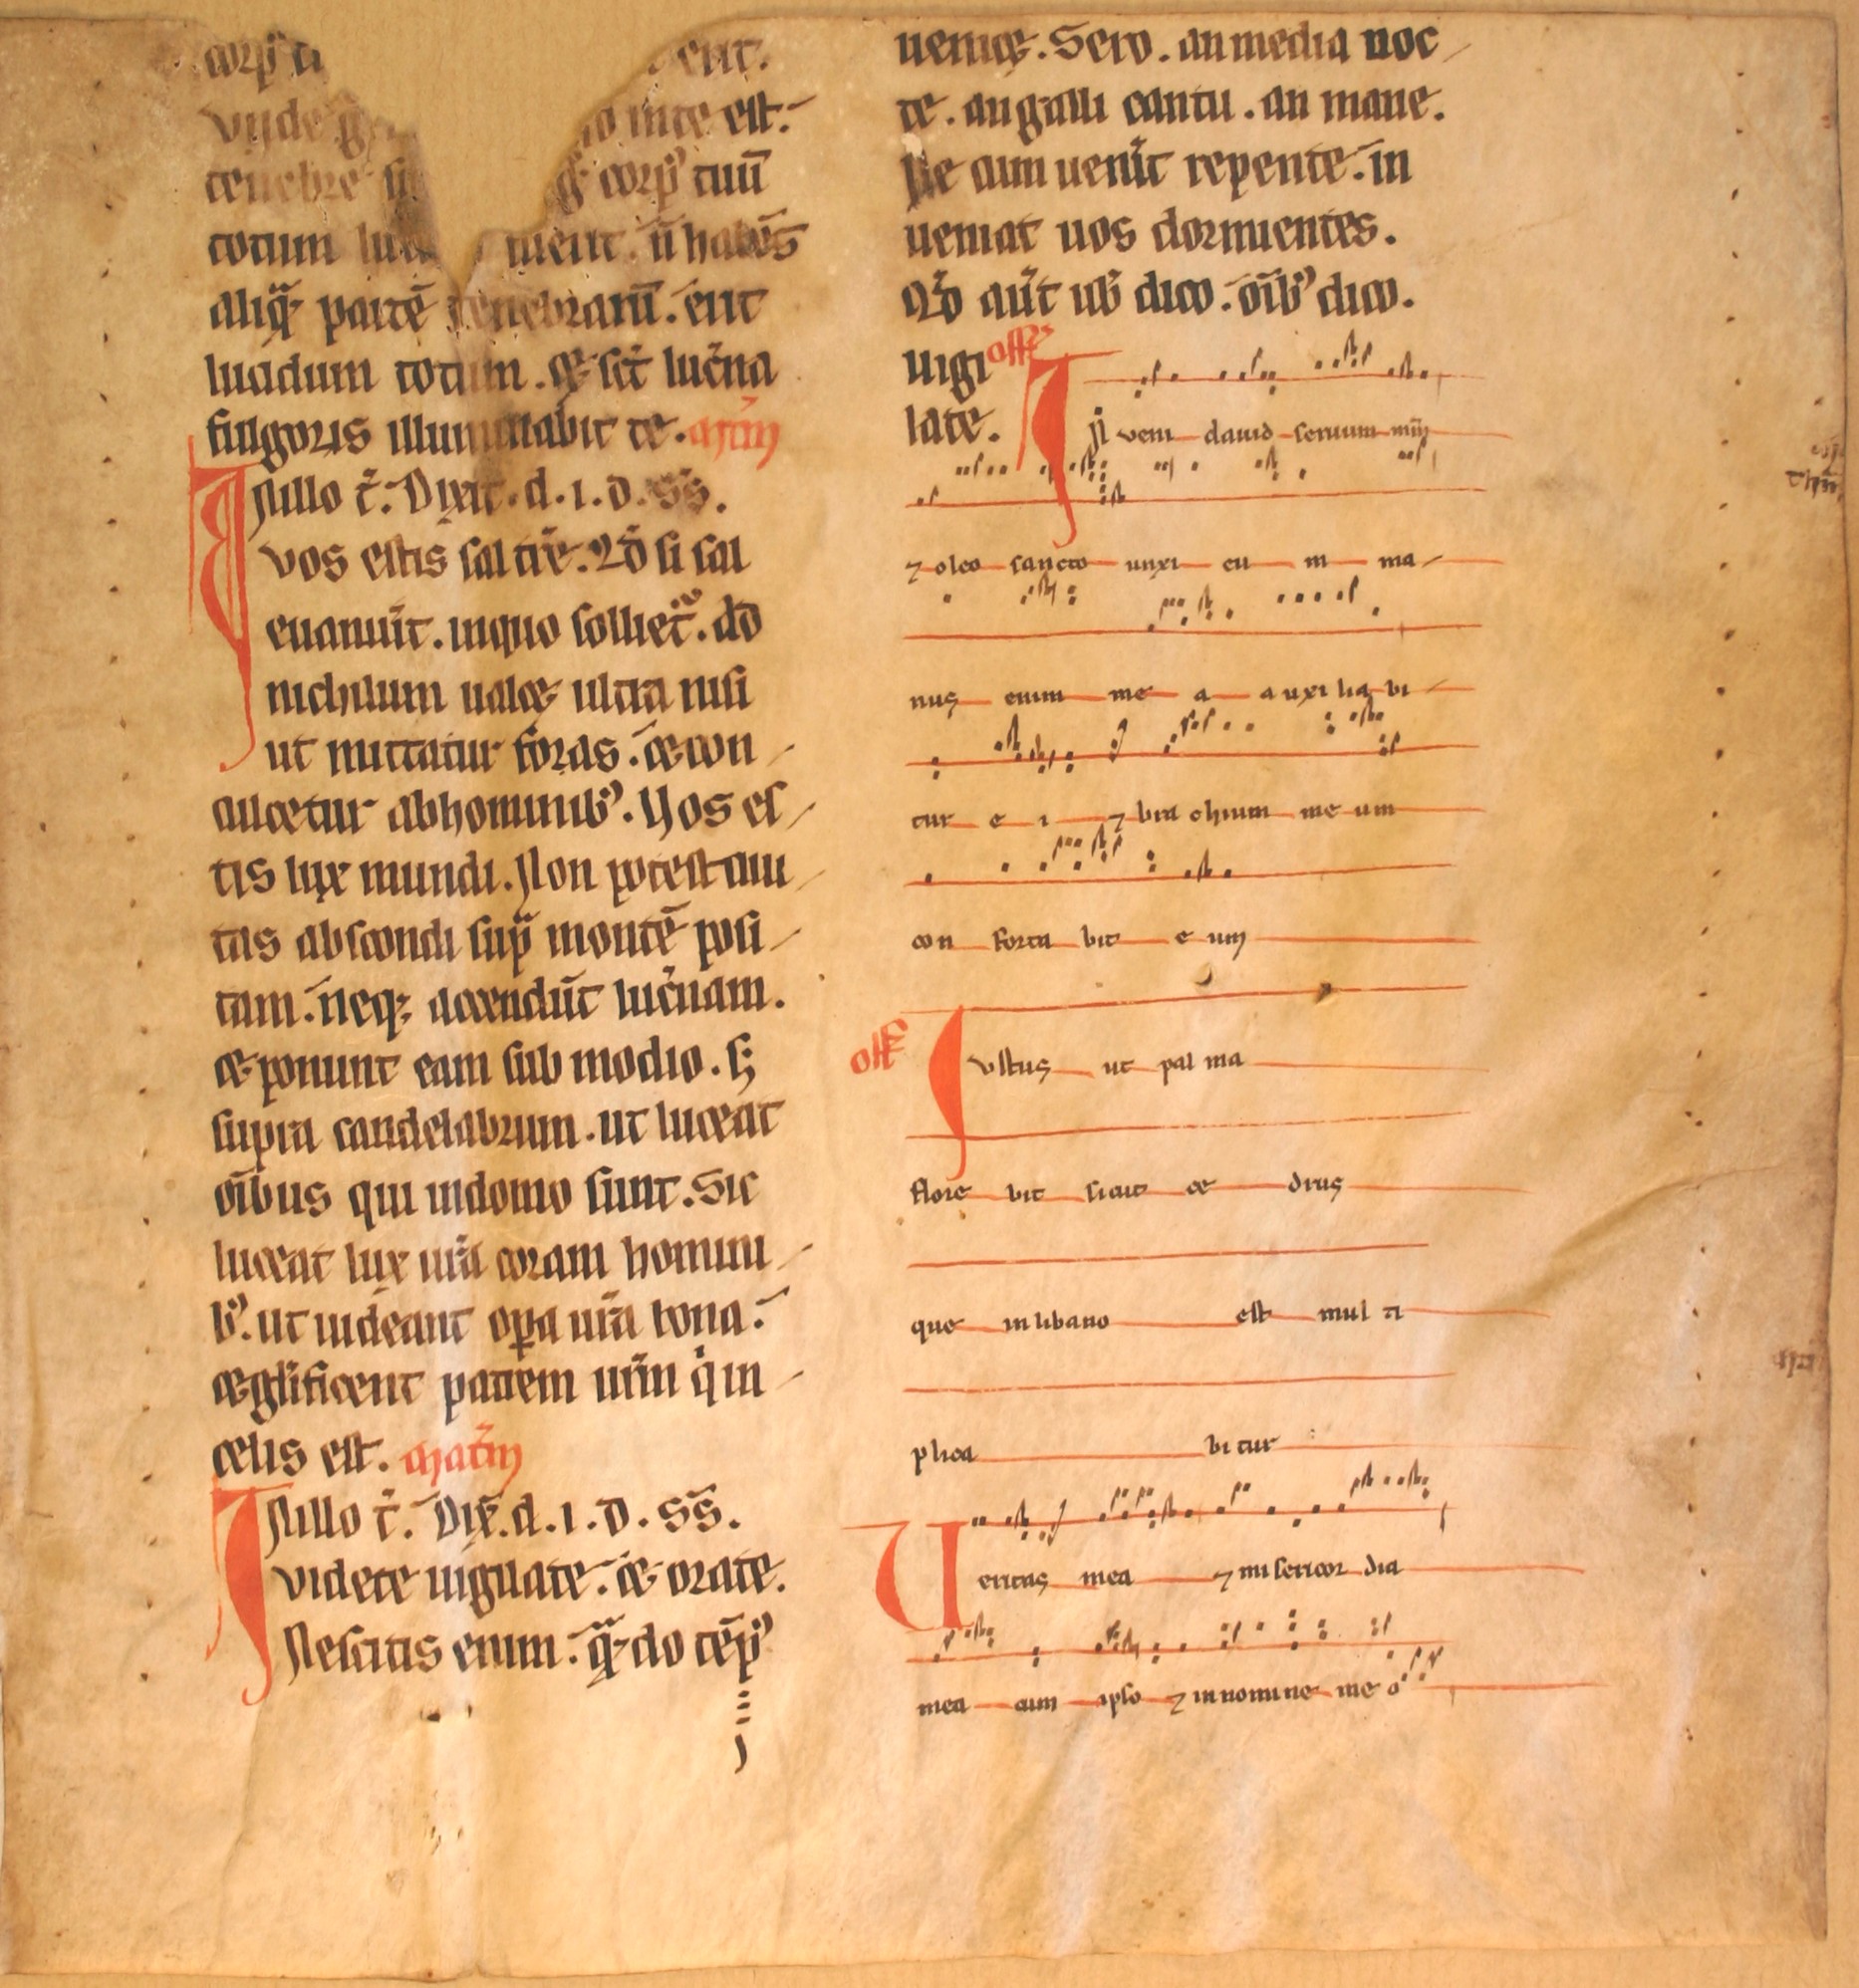 corpꝰ tu ent.
vide g io inte est.
tenebre si g̊ corpꝰ tuū
totum luc fuerit. ñ habēs
aliq̄ partē tenebrarū. erit
lucidum totum. et sic̄ luc̄na
fulgoris illuminabit te. Mathm̄
In illo t̄. Dixit. d. i. d. ss̄.
vos estis sal trē. Qd̄ si sal
euanuīt. in quo salliet᷑. Ad
nichilum ualet ultra nisi
ut mittatur foras. et con
culcetur ab hominibꝰ. Vos es
tis lux mundi. Non potest ciui
tas abscondi sup̄ montē posi
tam. neq; accendūt luc̄nam.
et ponunt eam sub modio. s;
supra candelabrum. ut luceat
oībus qui in domo sunt. Sic
luceat lux ur̄a coram homini
bꝰ. ut uideant opa ur̄a bona.
et gl̄ificent patrem ur̄m q̇ in
celis est. Marcm̄
In illo t̄. Dix̄. d. i. d. ss̄.
videte uigilate. et orate.
Nescitis enim. q̄ndo tēpꝰ
ueniet. Sero. an media noc
te. an galli cantu. an mane.
Ne cum uenīt repente. in
ueniat uos dormientes.
Qd̄ aūt uob̄ dico. oībꝰ dico.
uigi off̄
late. Inveni dauid seruum mm̄
⁊ oleo sancto unxi eu m ma
nus enim me a auxi lia bi
tur e i ⁊ bra chium me um
con forta bit e um
off̄ Iustus ut pal ma
flore bit sicut ce drus
que in libano est mul ti
plica bi tur
Veritas mea ⁊ misericor dia
mea cum ipso ⁊ in nomine me o